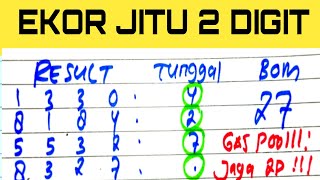 EKOR JITU 2 DIGIT
RESULT TUNGGAL BOM
1 3 3 0 : 4 27
8 1 8 4 : 2
5 5 3 2 : 7 GAS POOlll!
8 3 2 7 : . Jaga 2D !!!